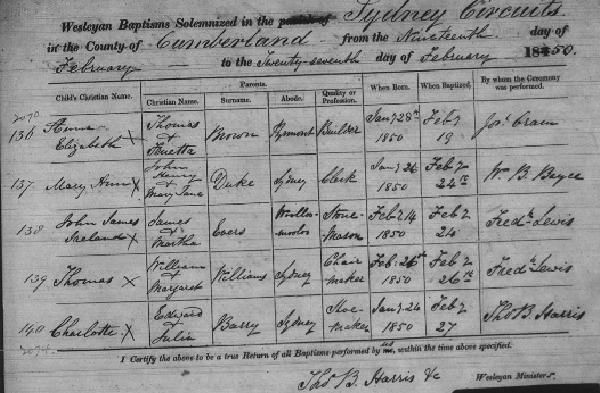 Wesleyan Baptisms Solemnized in the parish of Sydney Circuits
in the County of Cumberland from the Nineteenth day of
February to the Twenty-seventh day of February 1850.
Child's Christian Name. Parents. When Born. When Baptized. By whom the Ceremony was performed.
Christian Name. Surname. Abode. Quality or Profession.
136 Elizabeth X Thomas & Brown Pyrmont Builder Jany 28th 1850 Feby 19
137 Mary Ann X John Henry & Mary Jane Duke Sydney Clerk Jany 26 1850 Feby 24th Wm B. Boyce
138 John James Ireland X James & Martha Evers Woolloomooloo Stone-Mason Feby 14 1850 Feby 24 Fredk Lewis
139 Thomas X William & Margaret Williams Sydney Chair maker Feb. 1850 Feby 26th Fredk Lewis
140 Charlotte X Edward & Julia Barry Sydney Shoe-maker Jany 26 1850 Feby 27 Thos B Harris
I Certify the above to be a true Return of all Baptisms performed by us, within the time above specified.
Thos B. Harris &c Wesleyan Ministers.